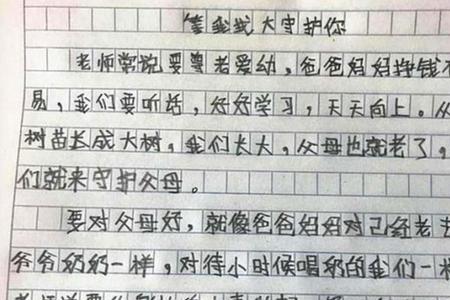 等我长大守护你
老师常说要尊老爱幼，爸爸妈妈挣钱不
易，我们要听话，好好学习，天天向上。从
树苗长成大树，我们长大，父母也就老了，
们就来守护父母。
要对父母好，就像爸爸妈妈对已经老
爷爷奶奶一样，对待小时候唱奶的我们一样